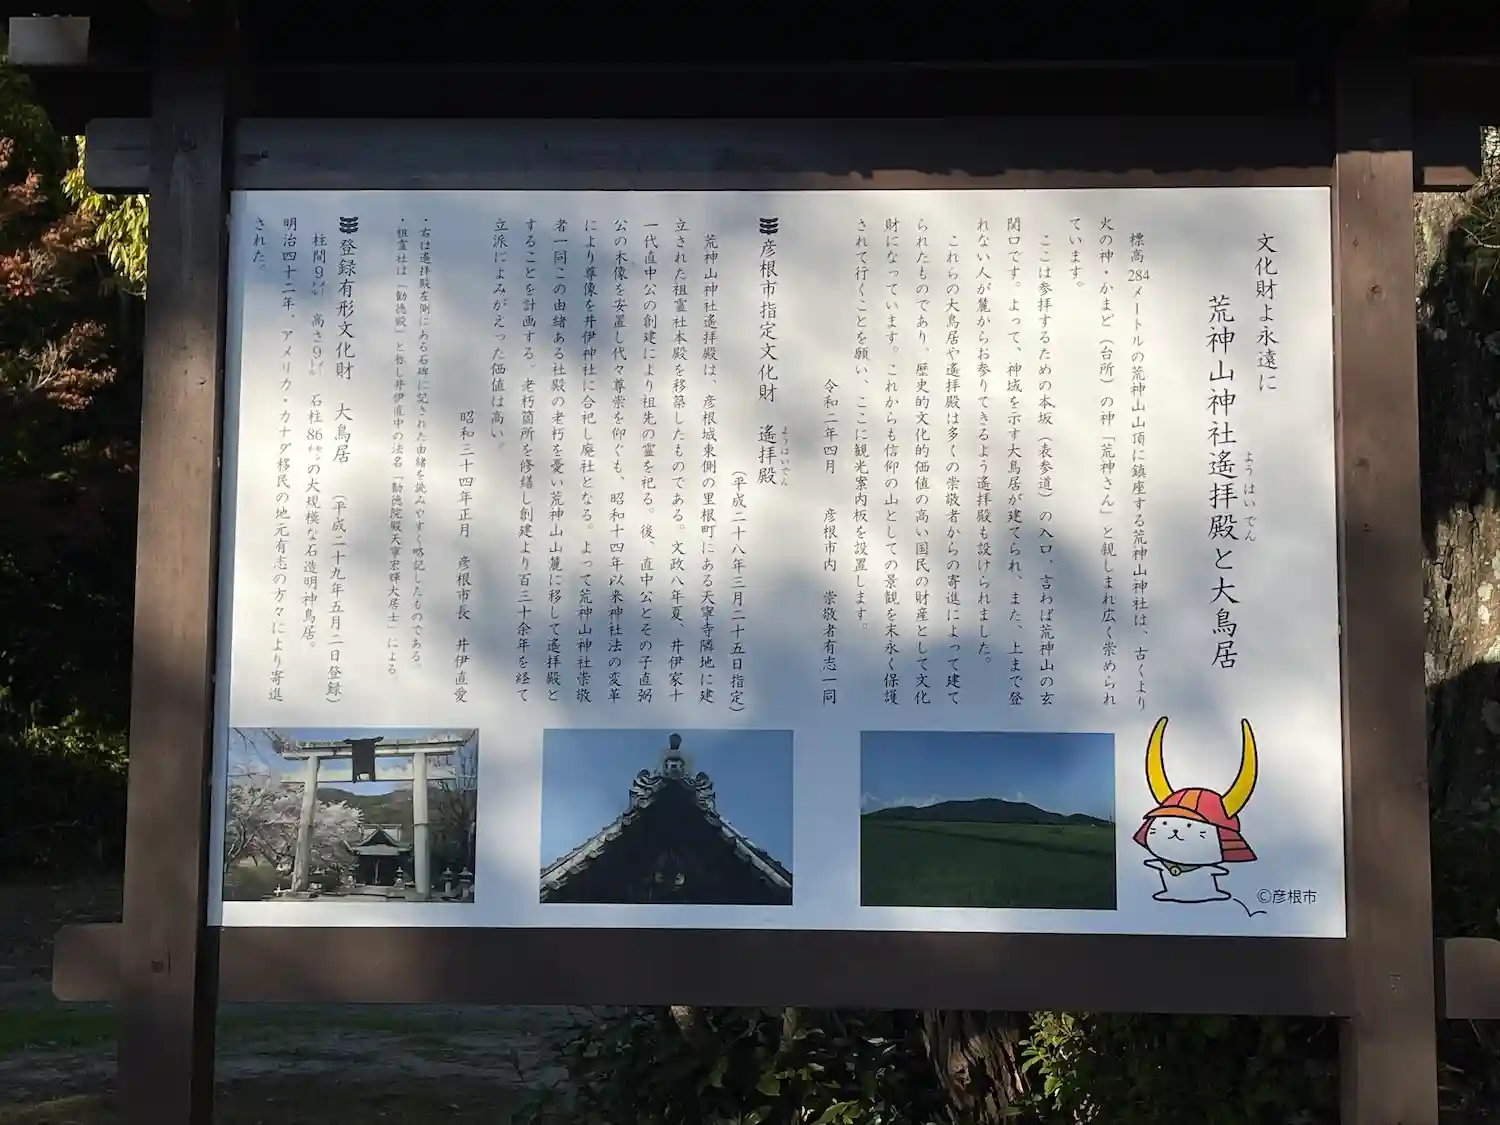 文化財よ永遠に
荒神山神社遙拝殿と大鳥居
ようはいでん
標高284メートルの荒神山山頂に鎮座する荒神山神社は、古くより
火の神・かまど（台所）の神「荒神さん」と親しまれ広く崇められ
ています。
ここは参拝するための本坂（表参道）の入口、言わば荒神山の玄
関口です。よって、神域を示す大鳥居が建てられ、また、上まで登
れない人が麓からお参りできるよう遙拝殿も設けられました。
これらの大鳥居や遙拝殿は多くの崇敬者からの寄進によって建て
られたものであり、歴史的文化的価値の高い国民の財産として文化
財になっています。これからも信仰の山としての景観を末永く保護
されて行くことを願い、ここに観光案内板を設置します。
令和二年四月 彦根市内 崇敬者有志一同
彦根市指定文化財 遙拝殿
ようはいでん
（平成二十八年三月二十五日指定）
荒神山神社遙拝殿は、彦根城東側の里根町にある天寧寺隣地に建
立された祖霊社本殿を移築したものである。文政八年夏、井伊家十
一代直中公の創建により祖先の霊を祀る。後、直中公とその子直弼
公の木像を安置し代々尊崇を仰ぐも、昭和十四年以来神社法の変革
により尊像を井伊神社に合祀し廃社となる。よって荒神山神社崇敬
者一同この由緒ある社殿の老朽を憂い荒神山山麓に移して遙拝殿と
することを計画する。老朽箇所を修繕し創建より百三十余年を経て
立派によみがえった価値は高い。
昭和三十四年正月 彦根市長 井伊直愛
・右は遙拝殿左側にある石碑に記された由緒を読みやすく略記したものである。
・祖霊社は「勧徳殿」と称し井伊直中の法名「勧徳院殿天寧宏輝大居士」による。
登録有形文化財 大鳥居 （平成二十九年五月二日登録）
柱間9㍍ 高さ9㍍ 石柱86㌢の大規模な石造明神鳥居。
明治四十二年、アメリカ・カナダ移民の地元有志の方々により寄進
された。
©彦根市